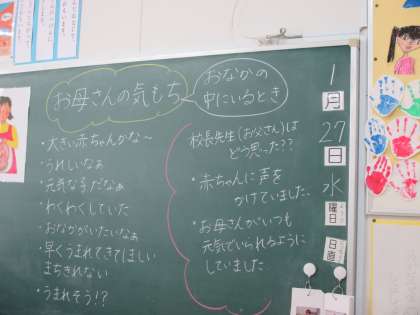 お母さんの気もち
おなかの
中にいるとき
・大きい赤ちゃんかな～
・うれしいなぁ
・元気な子だなぁ
・わくわくしていた
・おなかがいたいなぁ
・早くうまれてきてほしい
まちきれない
・うまれそう!?
校長先生(お父さん)は
どう思った??
・赤ちゃんに声を
かけていました。
・お母さんがいつも
元気でいられるように
していました。
1
月
27
日
水
曜日
日直